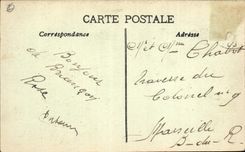 CARTE POSTALE
Correspondance
Adresse
Bonjour
de Briançon
Rose
Mr et Mme
Traverse du
Colonel
Marseille
B.-du-R.